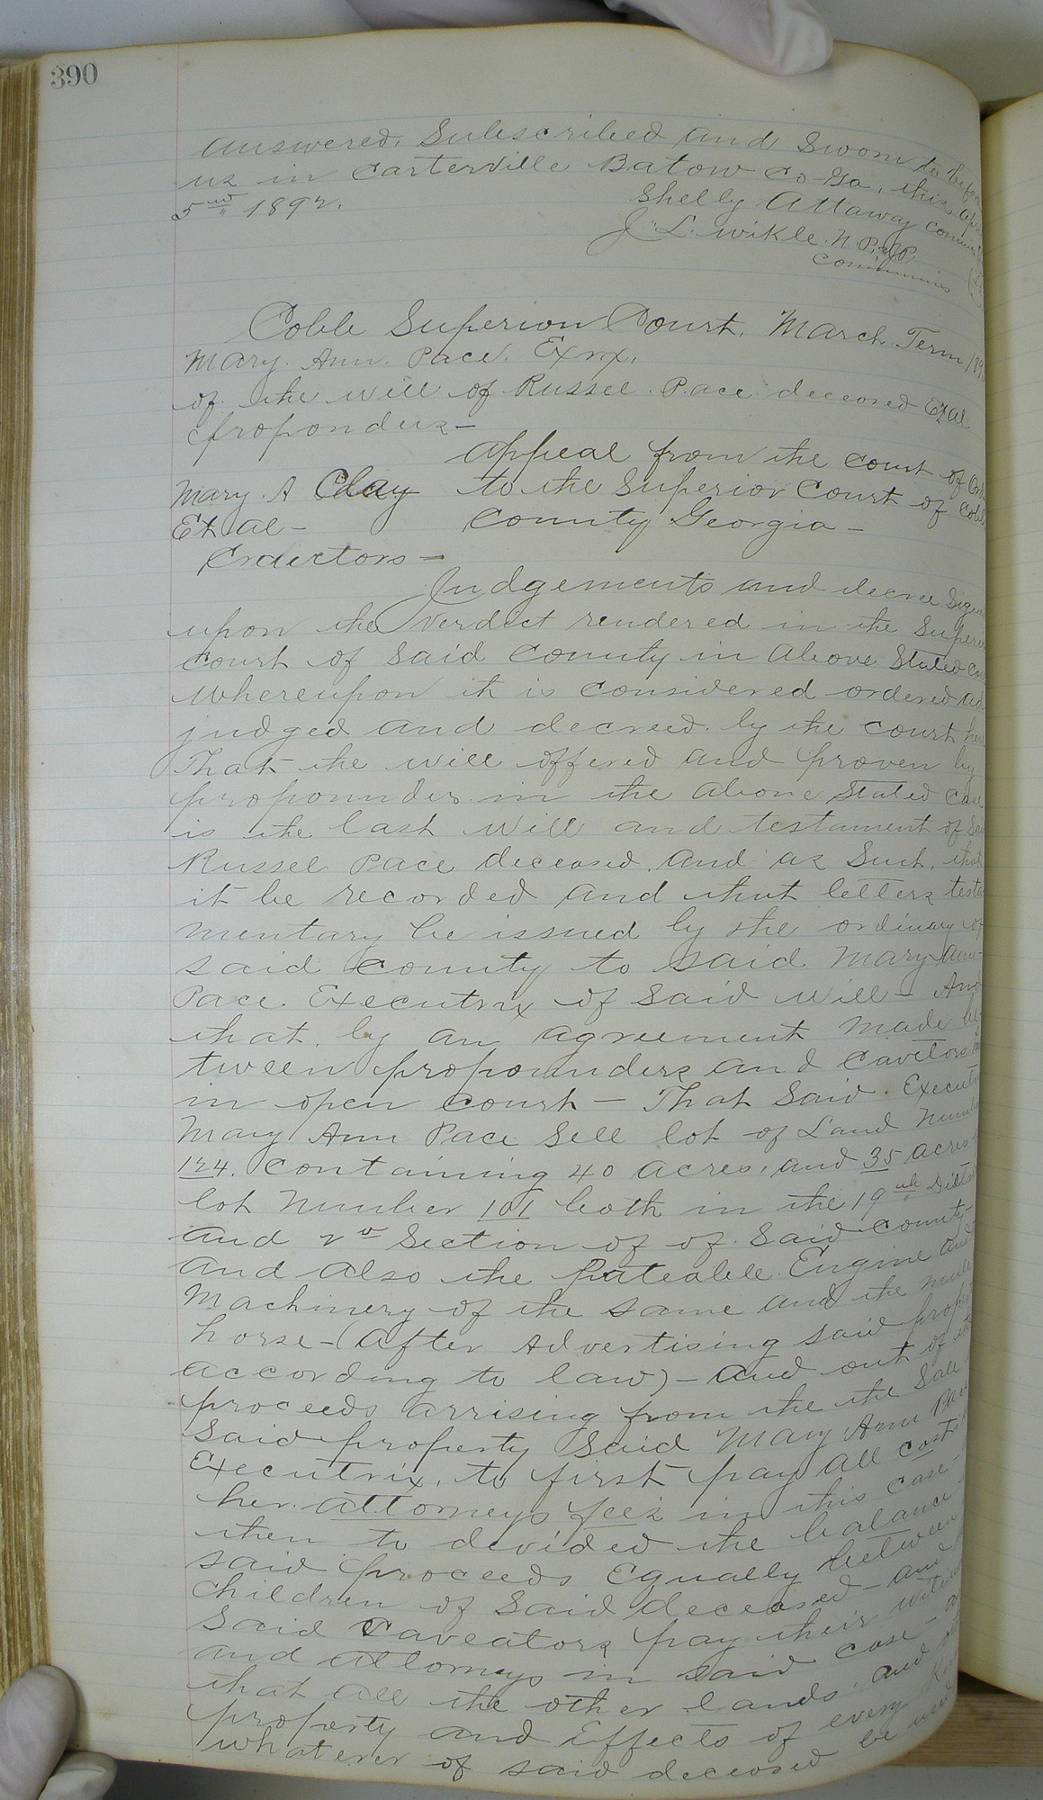 390
answered. Subscribed and Sworn to before
us in Carterville Batow Co Ga, this
5nd 1892.
Shelly Attaway
J. L. Wikle. N. P. & J. P.
Cobb Superior Court. March Term
Mary. Ann. Pace. Exrx.
of the will of Russel Pace deceased Et al
propondera-
appeal from the Court of
Mary. A Clay to the Superior Court of Cobb
Et al- County Georgia-
Judgements and decree
upon the Verdict rendered in the
Court of Said County in above Stated
whereupon it is considered ordered ad
judged and decreed. by the court
That the will offered and proven by
propounders in the above Stated Case
is the last Will and testament of
Russel Pace deceased. and as Such. that
it be recorded and that letters testa
mentary be issued by the ordinary of
said county to said Mary Ann
Pace Executrix of Said will- And
that. by an agreement made be
tween propounders and Cavetors
in open court- That Said. Executrix
Mary Ann Pace Sell lot of Land
124. Containing 40 acres, and 35 acres
lot Number 101 both in the 19th
and 2d Section of of Said County
and also the Engine and
Machinery of the same and the
horse-(after Advertising said
according to law)- and out of the
proceeds arrising from the the Sale
Said property Said Mary Ann Pace
Executrix. to first pay all cost
her attorneys feez in this case-
then to devided the balance
said proceeds Equally between
children of Said deceased- and
Said Caveators pay their
and attorneys in said case-
that all the other lands. and
property and Effects of every
whatever of said deceased be